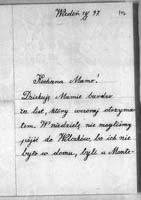 Wiedeń
Kochana Mamo!
Dziękuję Mamie bardzo
za list, który wczoraj otrzyma-
łem. W niedzielę nie mogliśmy
pójść do Wilczków, bo ich nie
było w domu, byli u Monte-